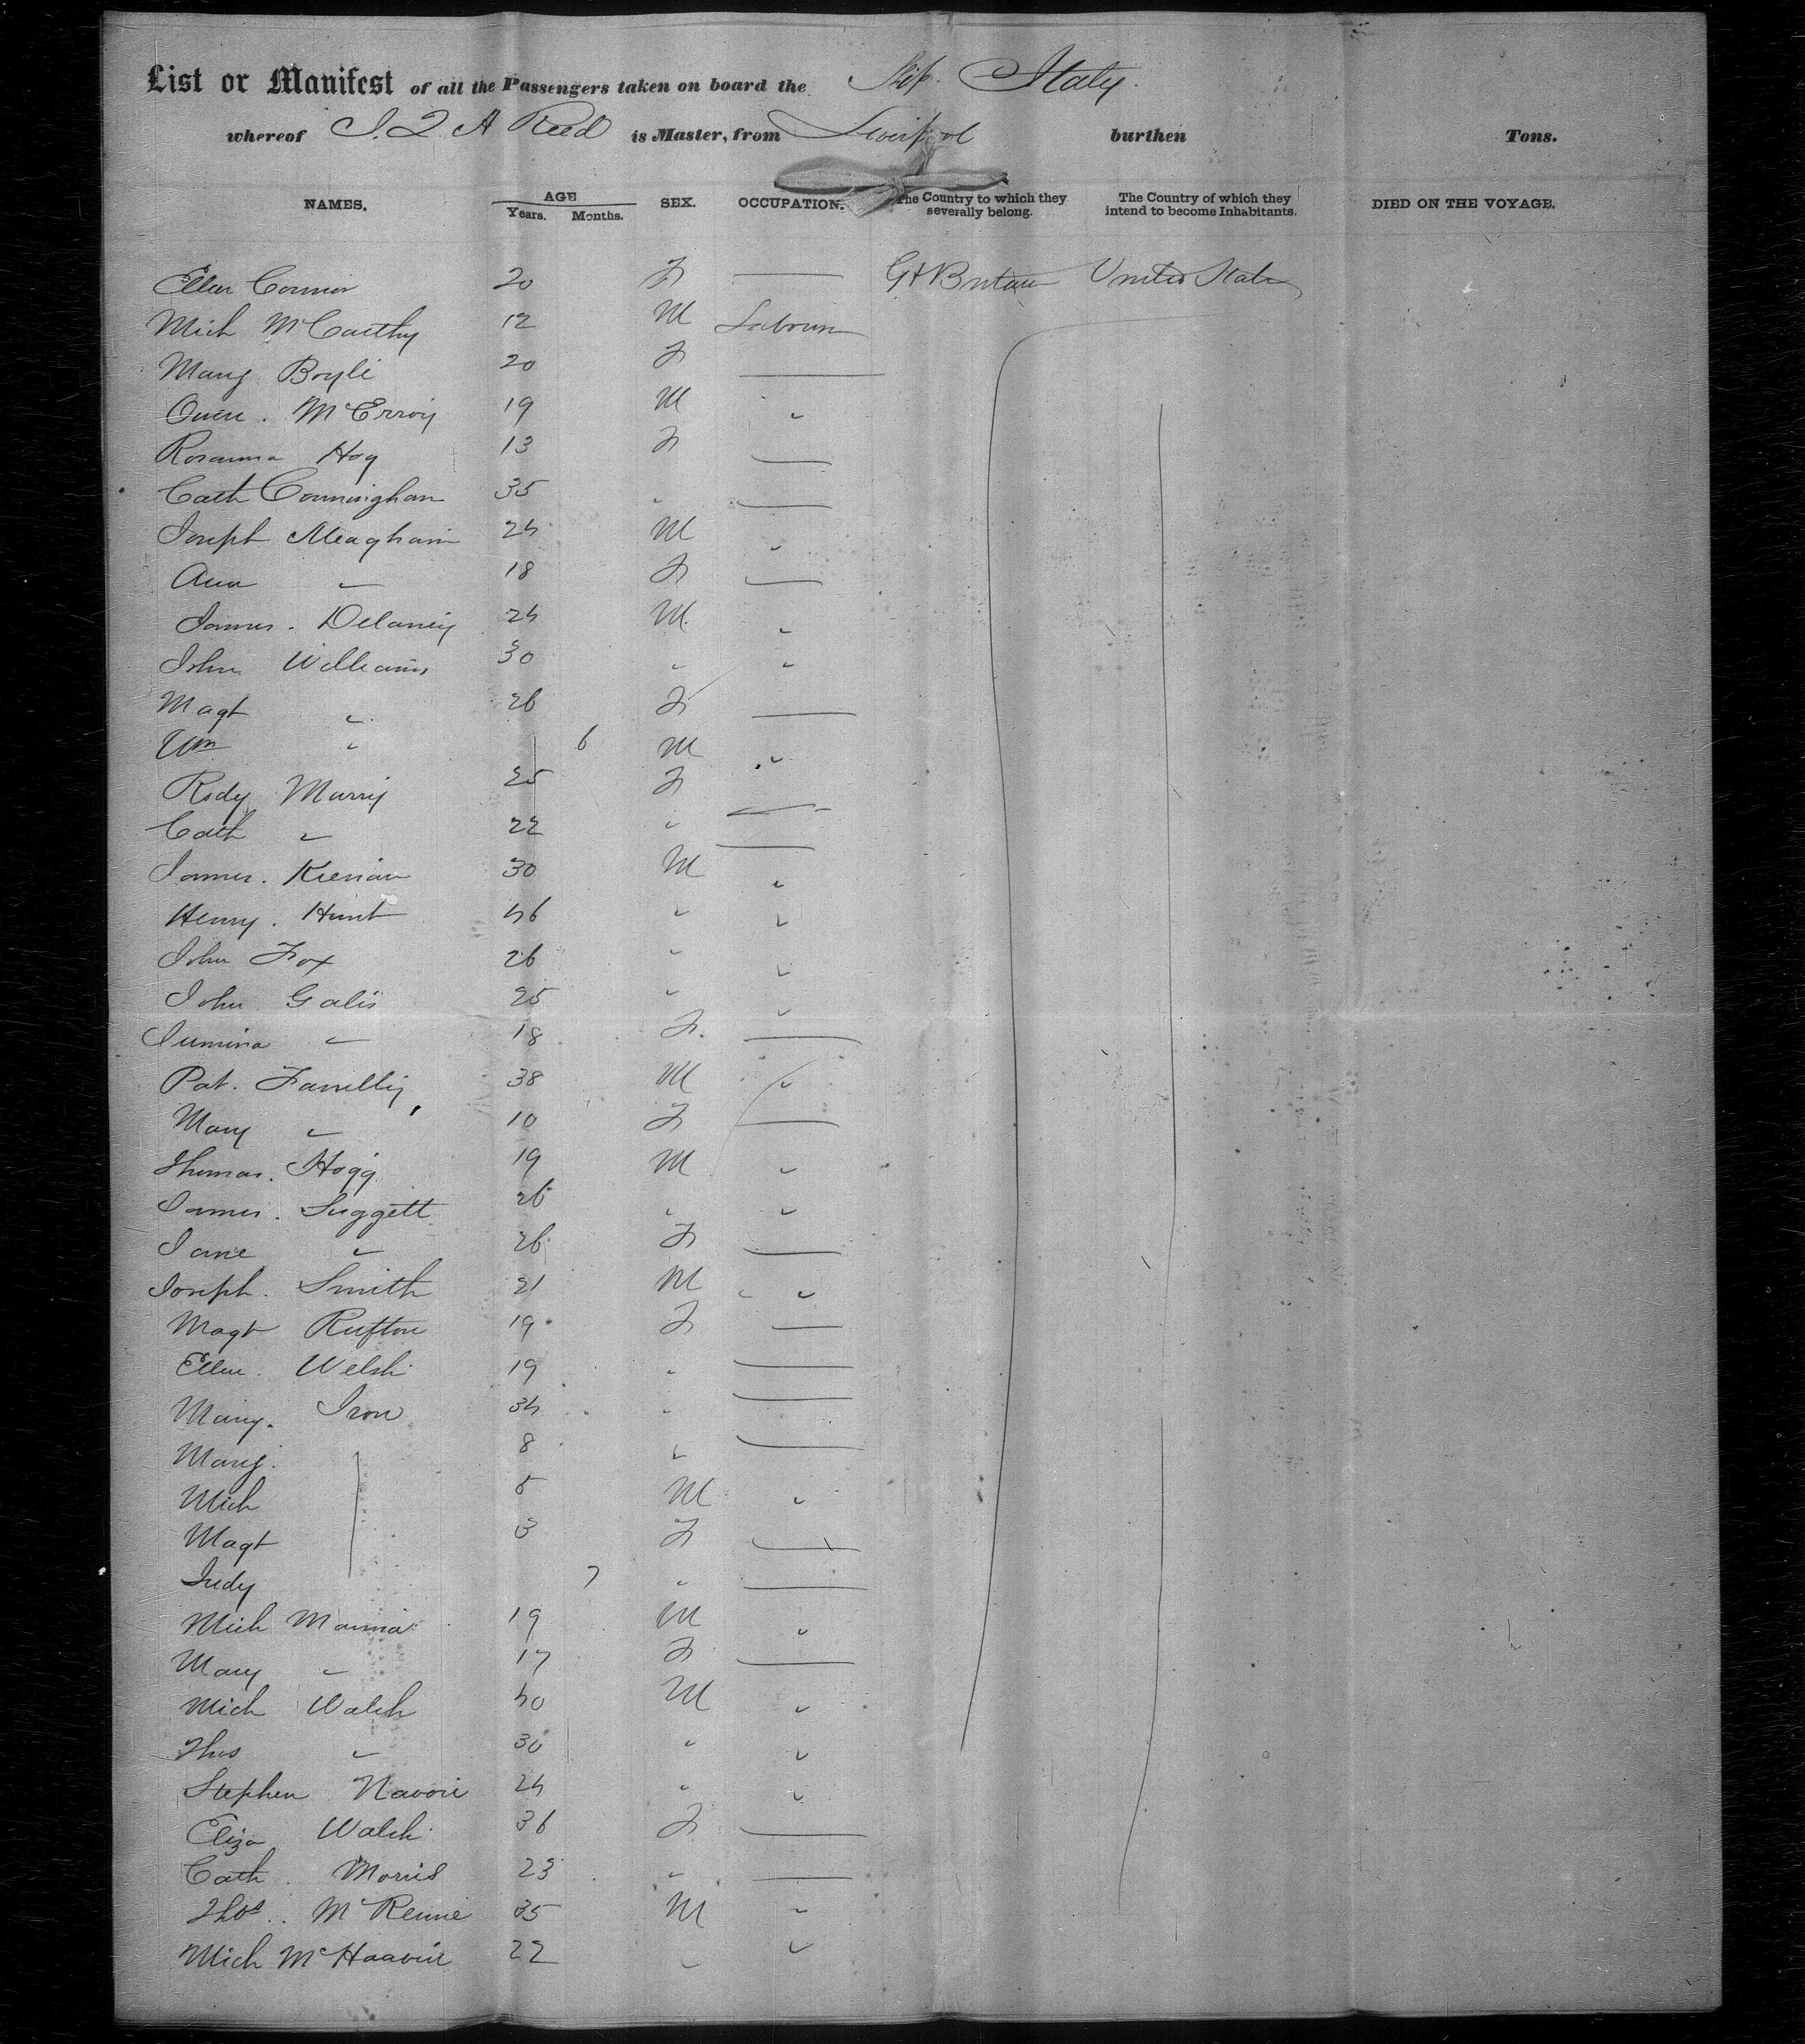 List or Manifest of all the Passengers taken on board the Ship Italy.
whereof J. Q. A Reed is Master, from Liverpool burthen Tons.
NAMES. AGE Years. Months. SEX. OCCUPATION. The Country to which they severally belong. The Country of which they intend to become Inhabitants. DIED ON THE VOYAGE.
Ellen Connor 20 F — Gt Britain United States
Mich McCarthy 12 M Labourer
Mary Boyle 20 F —
Owen. McErroy 19 M "
Rosanna Hog 13 F —
Cath Conningham 35 " —
Joseph Meagham 24 M "
Ann " 18 F —
James. Delaney 24 M. "
John Williams 30 " "
Magt " 26 F —
Wm " 6 M "
Rody Murry 25 F —
Cath " 22 " —
James. Kiernan 30 M "
Henry. Hunt 46 " "
John Fox 26 " "
John Galis 25 " "
" 18 F. —
Pat. 38 M "
Mary " 10 F —
Thomas. Hogg 19 M "
James. Suggett 26 " "
Jane " 26 F —
Joseph. Smith 21 M "
Magt Rufton 19 F —
Ellen. Welsh 19 " —
Mary. Iron 34 " —
Mary. 8 " —
Mich 5 M "
Magt 3 F —
Judy 7 " —
Mich Manna 19 M "
Mary " 17 F —
Mich Walsh 40 M "
Thos " 30 " "
Stephen Navorie 24 " "
Eliza Walsh 36 F —
Cath. Morris 23 " —
Thos.. McRennie 35 M "
Mich 22 " "